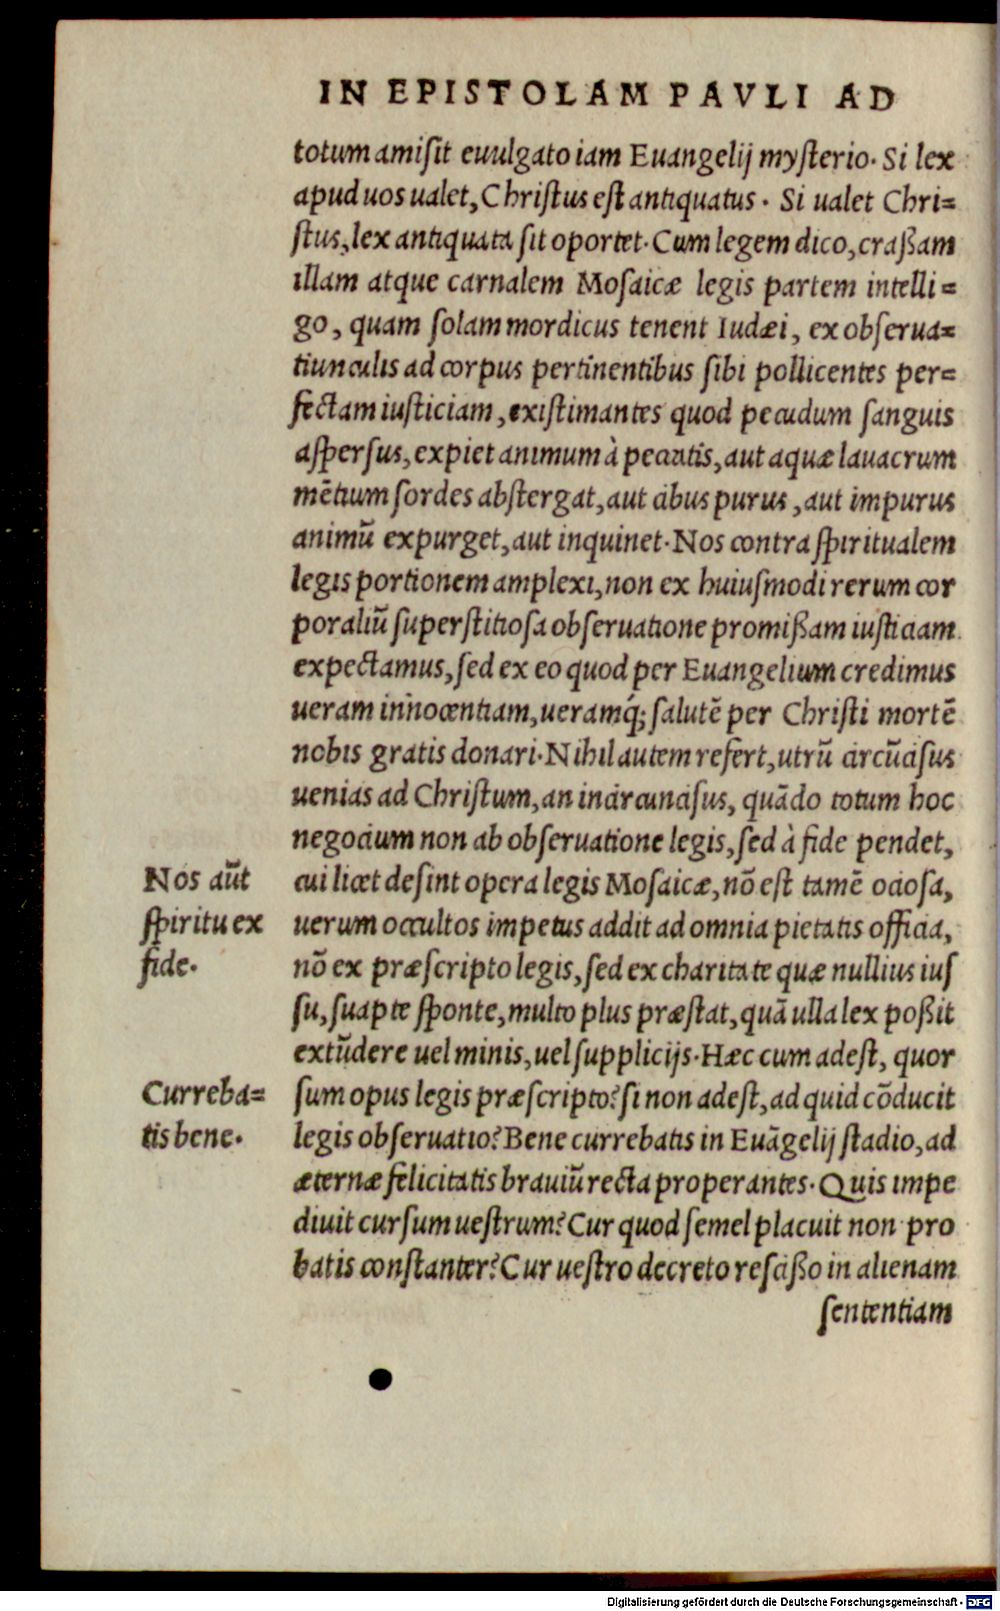 IN EPISTOLAM PAVLI AD
totum amiſit euulgato iam Euangelij myſterio. Si lex
apud uos ualet, Chriſtus eſt antiquatus. Si ualet Chri=
ſtus, lex antiquata ſit oportet. Cum legem dico, craßam
illam atque carnalem Moſaicæ legis partem intelli=
go, quam ſolam mordicus tenent Iudæi, ex obſerua=
tiunculis ad corpus pertinentibus ſibi pollicentes per=
fectam iuſticiam, existimantes quod pecudum ſanguis
aſperſus, expiet animum à peccatis, aut aquæ lauacrum
mẽtium ſordes abſtergat, aut cibus purus, aut impurus
animũ expurget, aut inquinet. Nos contra ſpiritualem
legis portionem amplexi, non ex huiuſmodi rerum cor
poraliũ ſuperſtitioſa obſeruatione promißam iuſticiam
expectamus, ſed ex eo quod per Euangelium credimus
ueram innocentiam, ueramq́; ſalutẽ per Chriſti mortẽ
nobis gratis donari. Nihil autem refert, utrũ circũciſus
uenias ad Chriſtum, an incircunciſus, quãdo totum hoc
negocium non ab obſeruatione legis, ſed à fide pendet,
Nos aũt
cui licet deſint opera legis Moſaicæ, nõ eſt tamẽ ocioſa,
ſpiritu ex
uerum occultos impetus addit ad omnia pietatis officia,
fide.
nõ ex præſcripto legis, ſed ex charitate quæ nullius iuſ
ſu, ſuapte ſponte, multo plus præſtat, quã ulla lex poßit
extũdere uel minis, uel ſupplicijs. Hæc cum adeſt, quor
Curreba=
ſum opus legis præſcripto? ſi non adeſt, ad quid cõducit
tis bene.
legis obſeruatio? Bene currebatis in Euãgelij ſtadio, ad
æternæ felicitatis brauiũ recta properantes. Quis impe
diuit curſum ueſtrum? Cur quod ſemel placuit non pro
batis conſtanter? Cur ueſtro decreto reſcißo in alienam
ſententiam
Digitalisierung gefördert durch die Deutsche Forschungsgemeinschaft - DFG